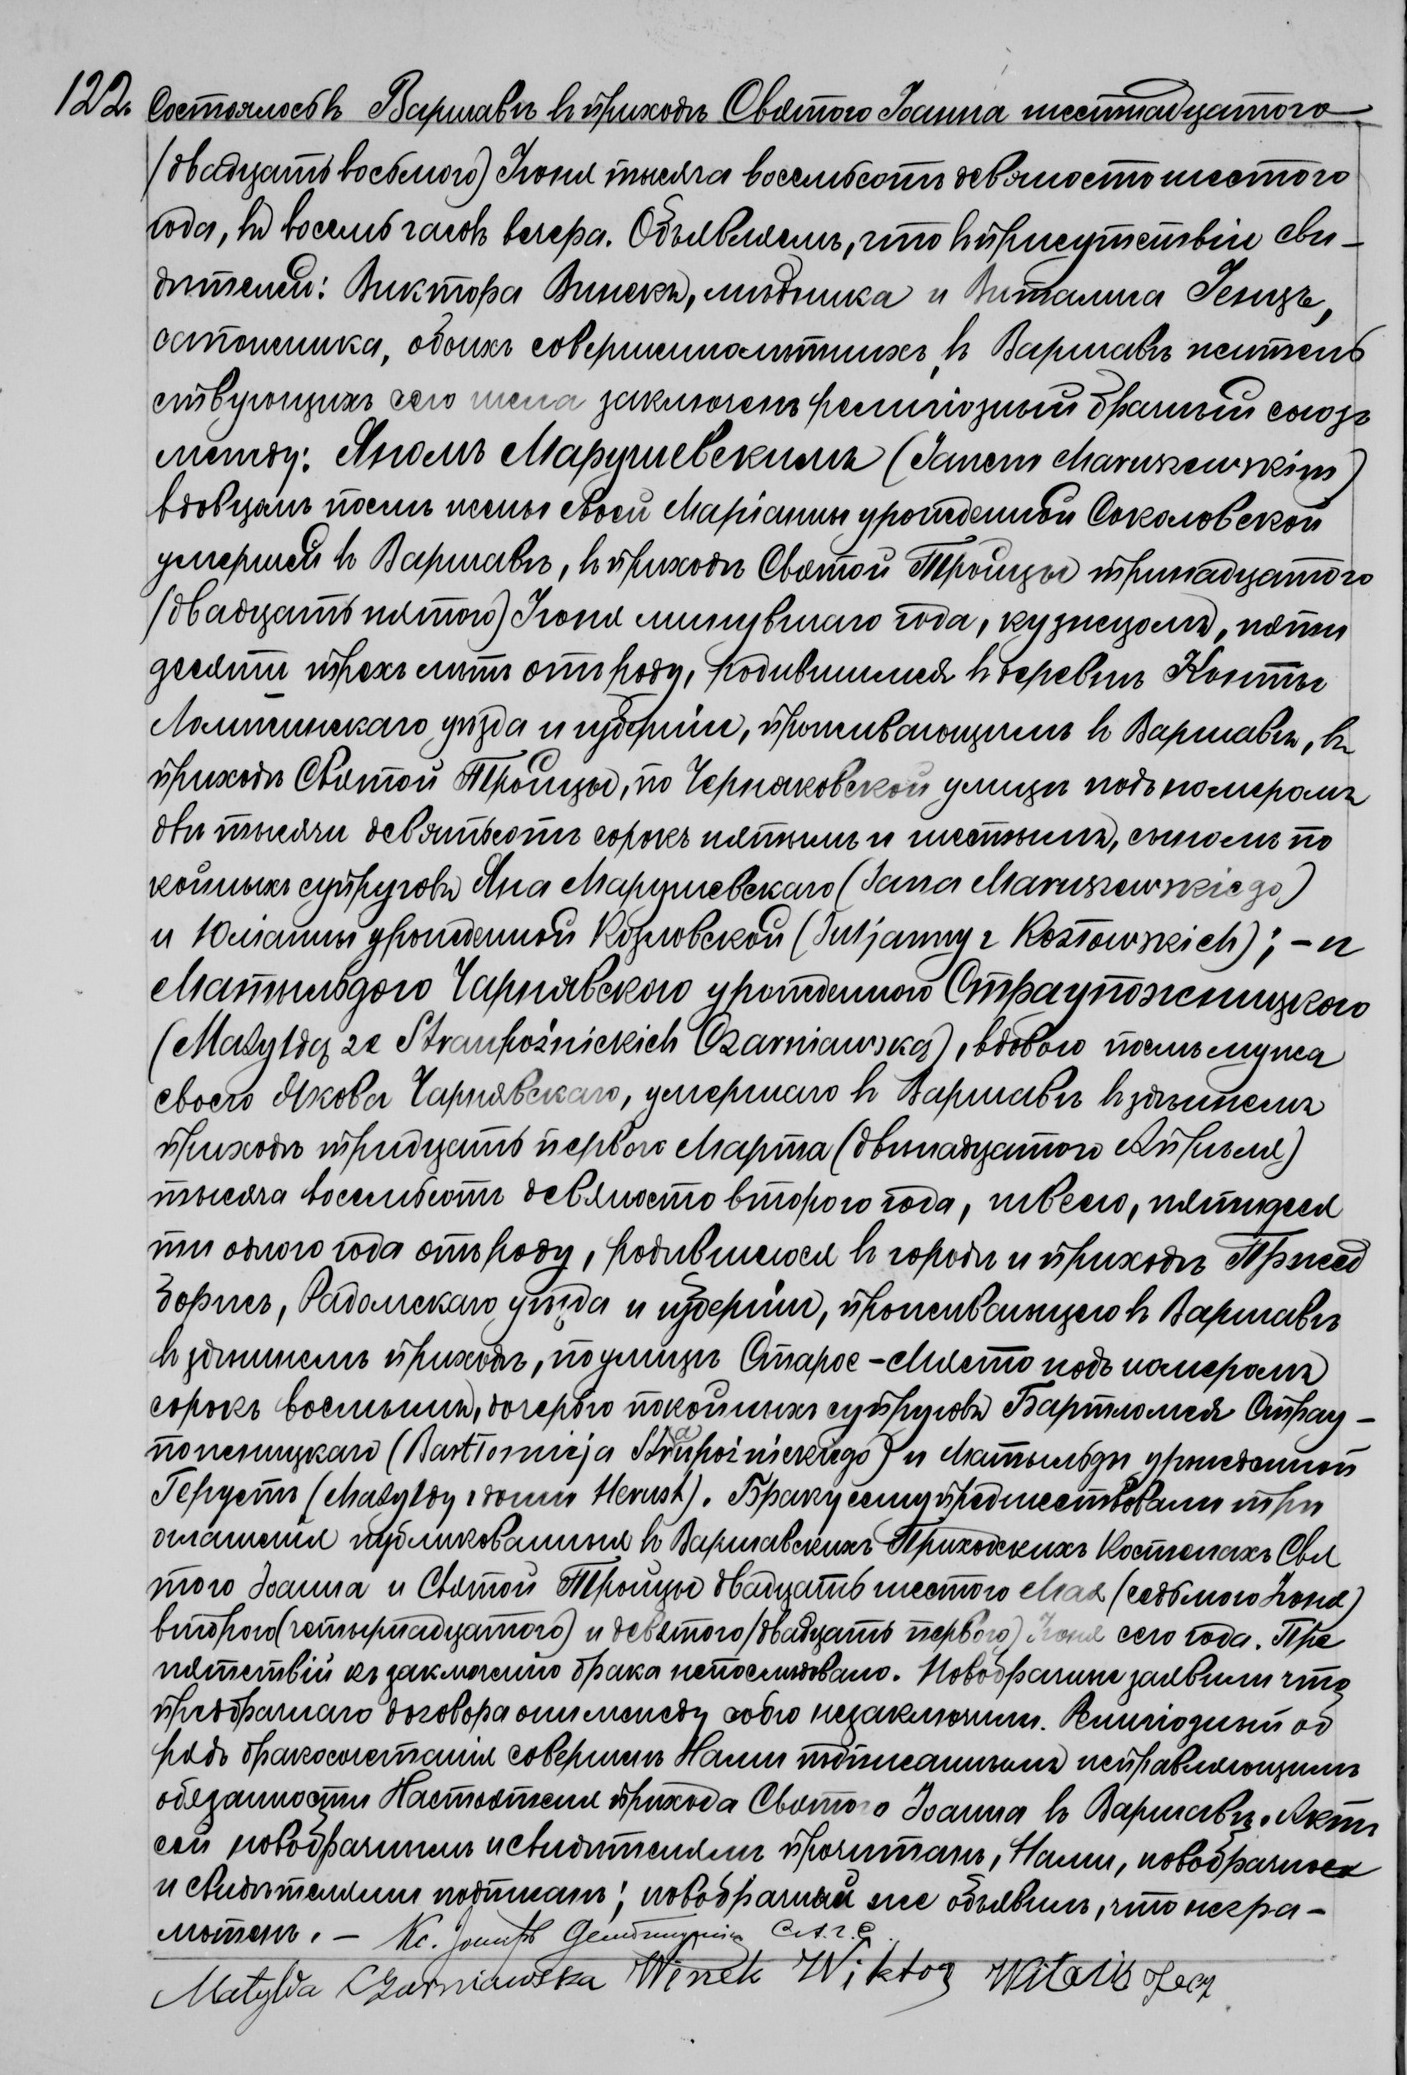 122. Состоялось въ Варшавѣ въ приходѣ Святого Іоанна шестнадцатого
(двадцать восьмого) Іюня тысяча восемьсотъ девяносто шестого
года, въ восемь часовъ вечера. Объявляемъ, что въ присутствіи сви-
дѣтелей: Виктора Винекъ, мѣдника и Виталиса Генцъ,
сапожника, обоихъ совершеннолѣтнихъ, въ Варшавѣ житель
ствующихъ сего числа заключенъ религіозный брачный союзъ
между: Яномъ Марушевскимъ (Janem Maruszewskim)
вдовцомъ послѣ жены своей Маріанны урожденной Соколовской
умершей въ Варшавѣ, въ приходѣ Святой Троицы тринадцатого
(двадцать пятого) Іюня минувшаго года, кузнецомъ, пяти
десяти трехъ лѣтъ отъ роду, родившимся въ деревнѣ Конты
Ломжинскаго уѣзда и губерніи, проживающимъ въ Варшавѣ, въ
приходѣ Святой Троицы, по Черняковской улицѣ подъ номеромъ
двѣ тысячи девятьсотъ сорокъ пятымъ и шестымъ, сыномъ по
койныхъ супруговъ Яна Марушевскаго (Jana Maruszewskiego)
и Юліанны урожденной Козловской (Juljanny z Kozłowskich); - и
Матыльдою Чарнявскою урожденною Страупожницкою
(Matyldą ze Straupoźnickich Czarniawską), вдовою послѣ мужа
своего Якова Чарнявскаго, умершаго въ Варшавѣ въ здѣшнемъ
приходѣ тридцать перваго Марта (двѣнадцатого Апрѣля)
тысяча восемьсотъ девяносто второго года, швеею, пятидеся
ти одного года отъ роду, родившеюся въ городѣ и приходѣ Пржед
боржъ, Радомскаго уѣзда и губерніи, проживающею въ Варшавѣ
въ здѣшнемъ приходѣ, по улицѣ Старое-Място подъ номеромъ
сорокъ восьмымъ, дочерью покойныхъ супруговъ Бартломея Страу-
пожницкаго (Bartłomieja Straupoźnickiego) и Матыльды урожденной
Герустъ (Matyldy z domu Herust). Браку сему предшествовали три
оглашенія публикованныя въ Варшавскихъ Приходскихъ Костелахъ Свя
того Іоанна и Святой Троицы двадцать шестого Мая (седьмого Іюня)
второго (четырнадцатого) и девятого (двадцать первого) Іюня сего года. Пре
пятствій къ заключенію брака непослѣдовало. Новобрачные заявили что
предбрачнаго договора они между собою незаключили. Религіозный об
рядъ бракосочетанія совершенъ Нами подписаннымъ исправляющимъ
обязанности Настоятеля прихода Святого Іоанна въ Варшавѣ. Актъ
сей новобрачнымъ и свидѣтелямъ прочитанъ, Нами, новобрачною
и свидѣтелями подписанъ; новобрачный же объявилъ, что негра-
мотенъ. -
Matylda Czarniawska Winek Wiktor Witalis